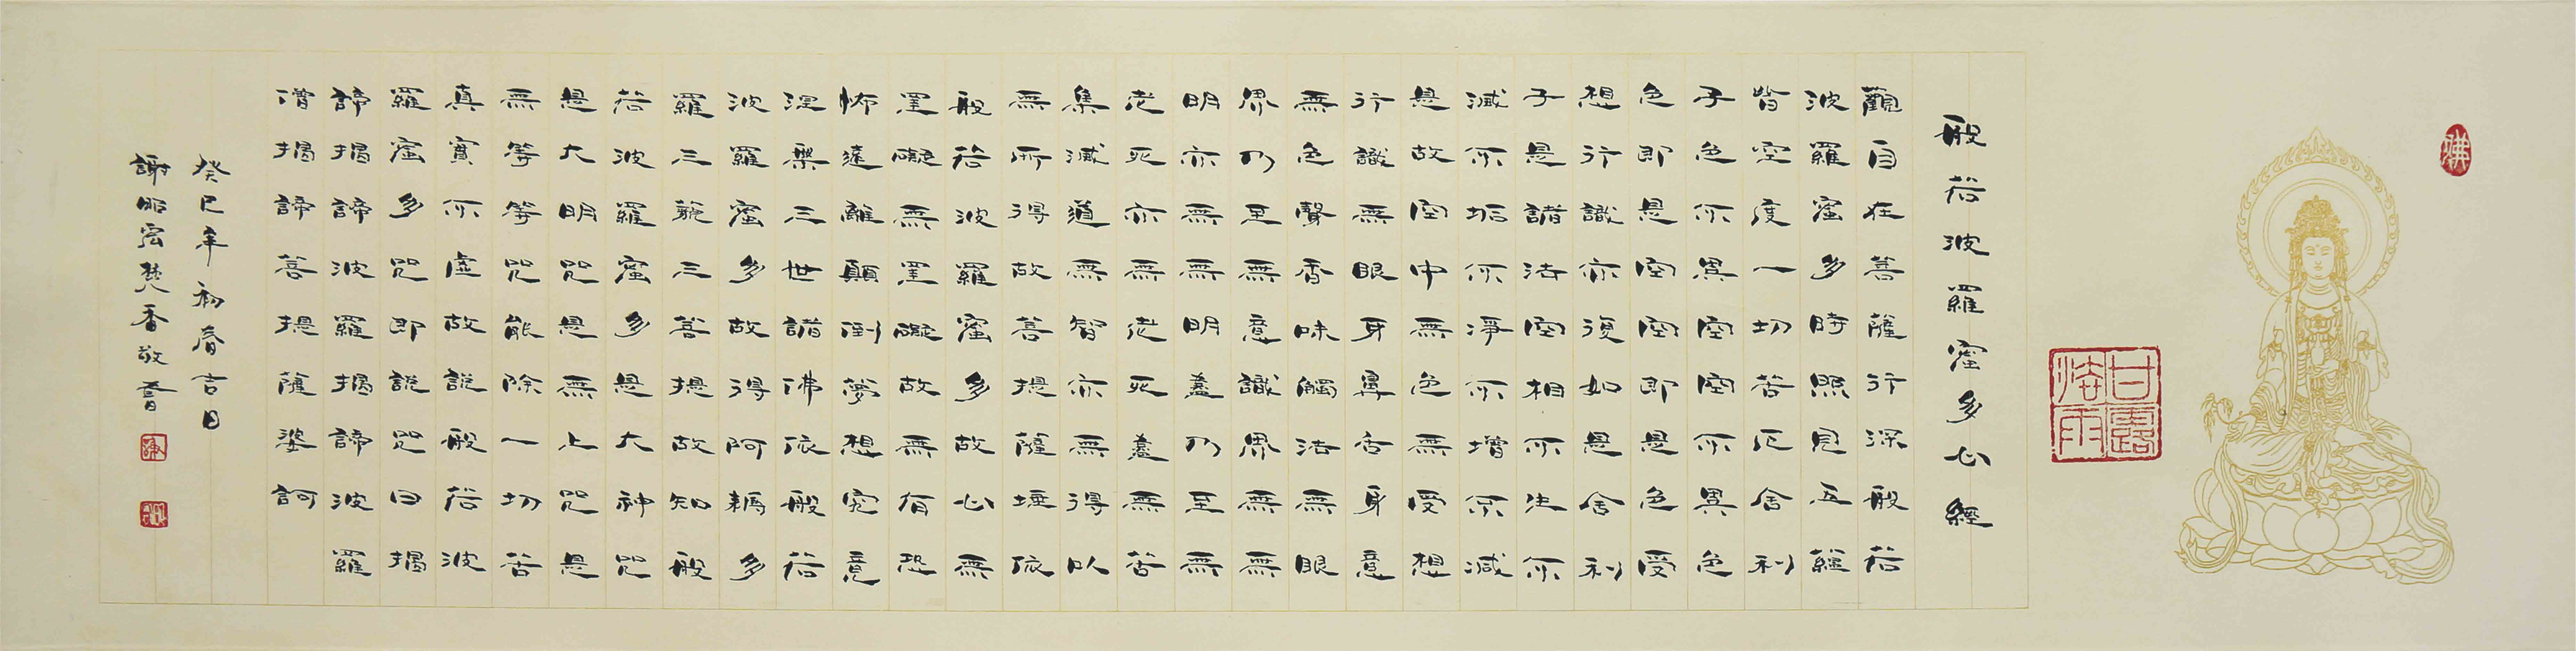 佛
般若波羅蜜多心經
觀自在菩薩行深般若
波羅蜜多時照見五蘊
皆空度一切苦厄舍利
子色不異空空不異色
色即是空空即是色受
想行識亦復如是舍利
子是諸法空相不生不
滅不垢不淨不增不減
是故空中無色無受想
行識無眼耳鼻舌身意
無色聲香味觸法無眼
界乃至無意識界無無
明亦無無明盡乃至無
老死亦無老死盡無苦
集滅道無智亦無得以
無所得故菩提薩埵依
般若波羅蜜多故心無
罣礙無罣礙故無有恐
怖遠離顛倒夢想究竟
涅槃三世諸佛依般若
波羅蜜多故得阿耨多
羅三藐三菩提故知般
若波羅蜜多是大神咒
是大明咒是無上咒是
無等等咒能除一切苦
真實不虛故說般若波
羅蜜多咒即說咒曰揭
諦揭諦波羅揭諦波羅
僧揭諦菩提薩婆訶
癸巳年初春吉日
謝昭宏焚香敬書